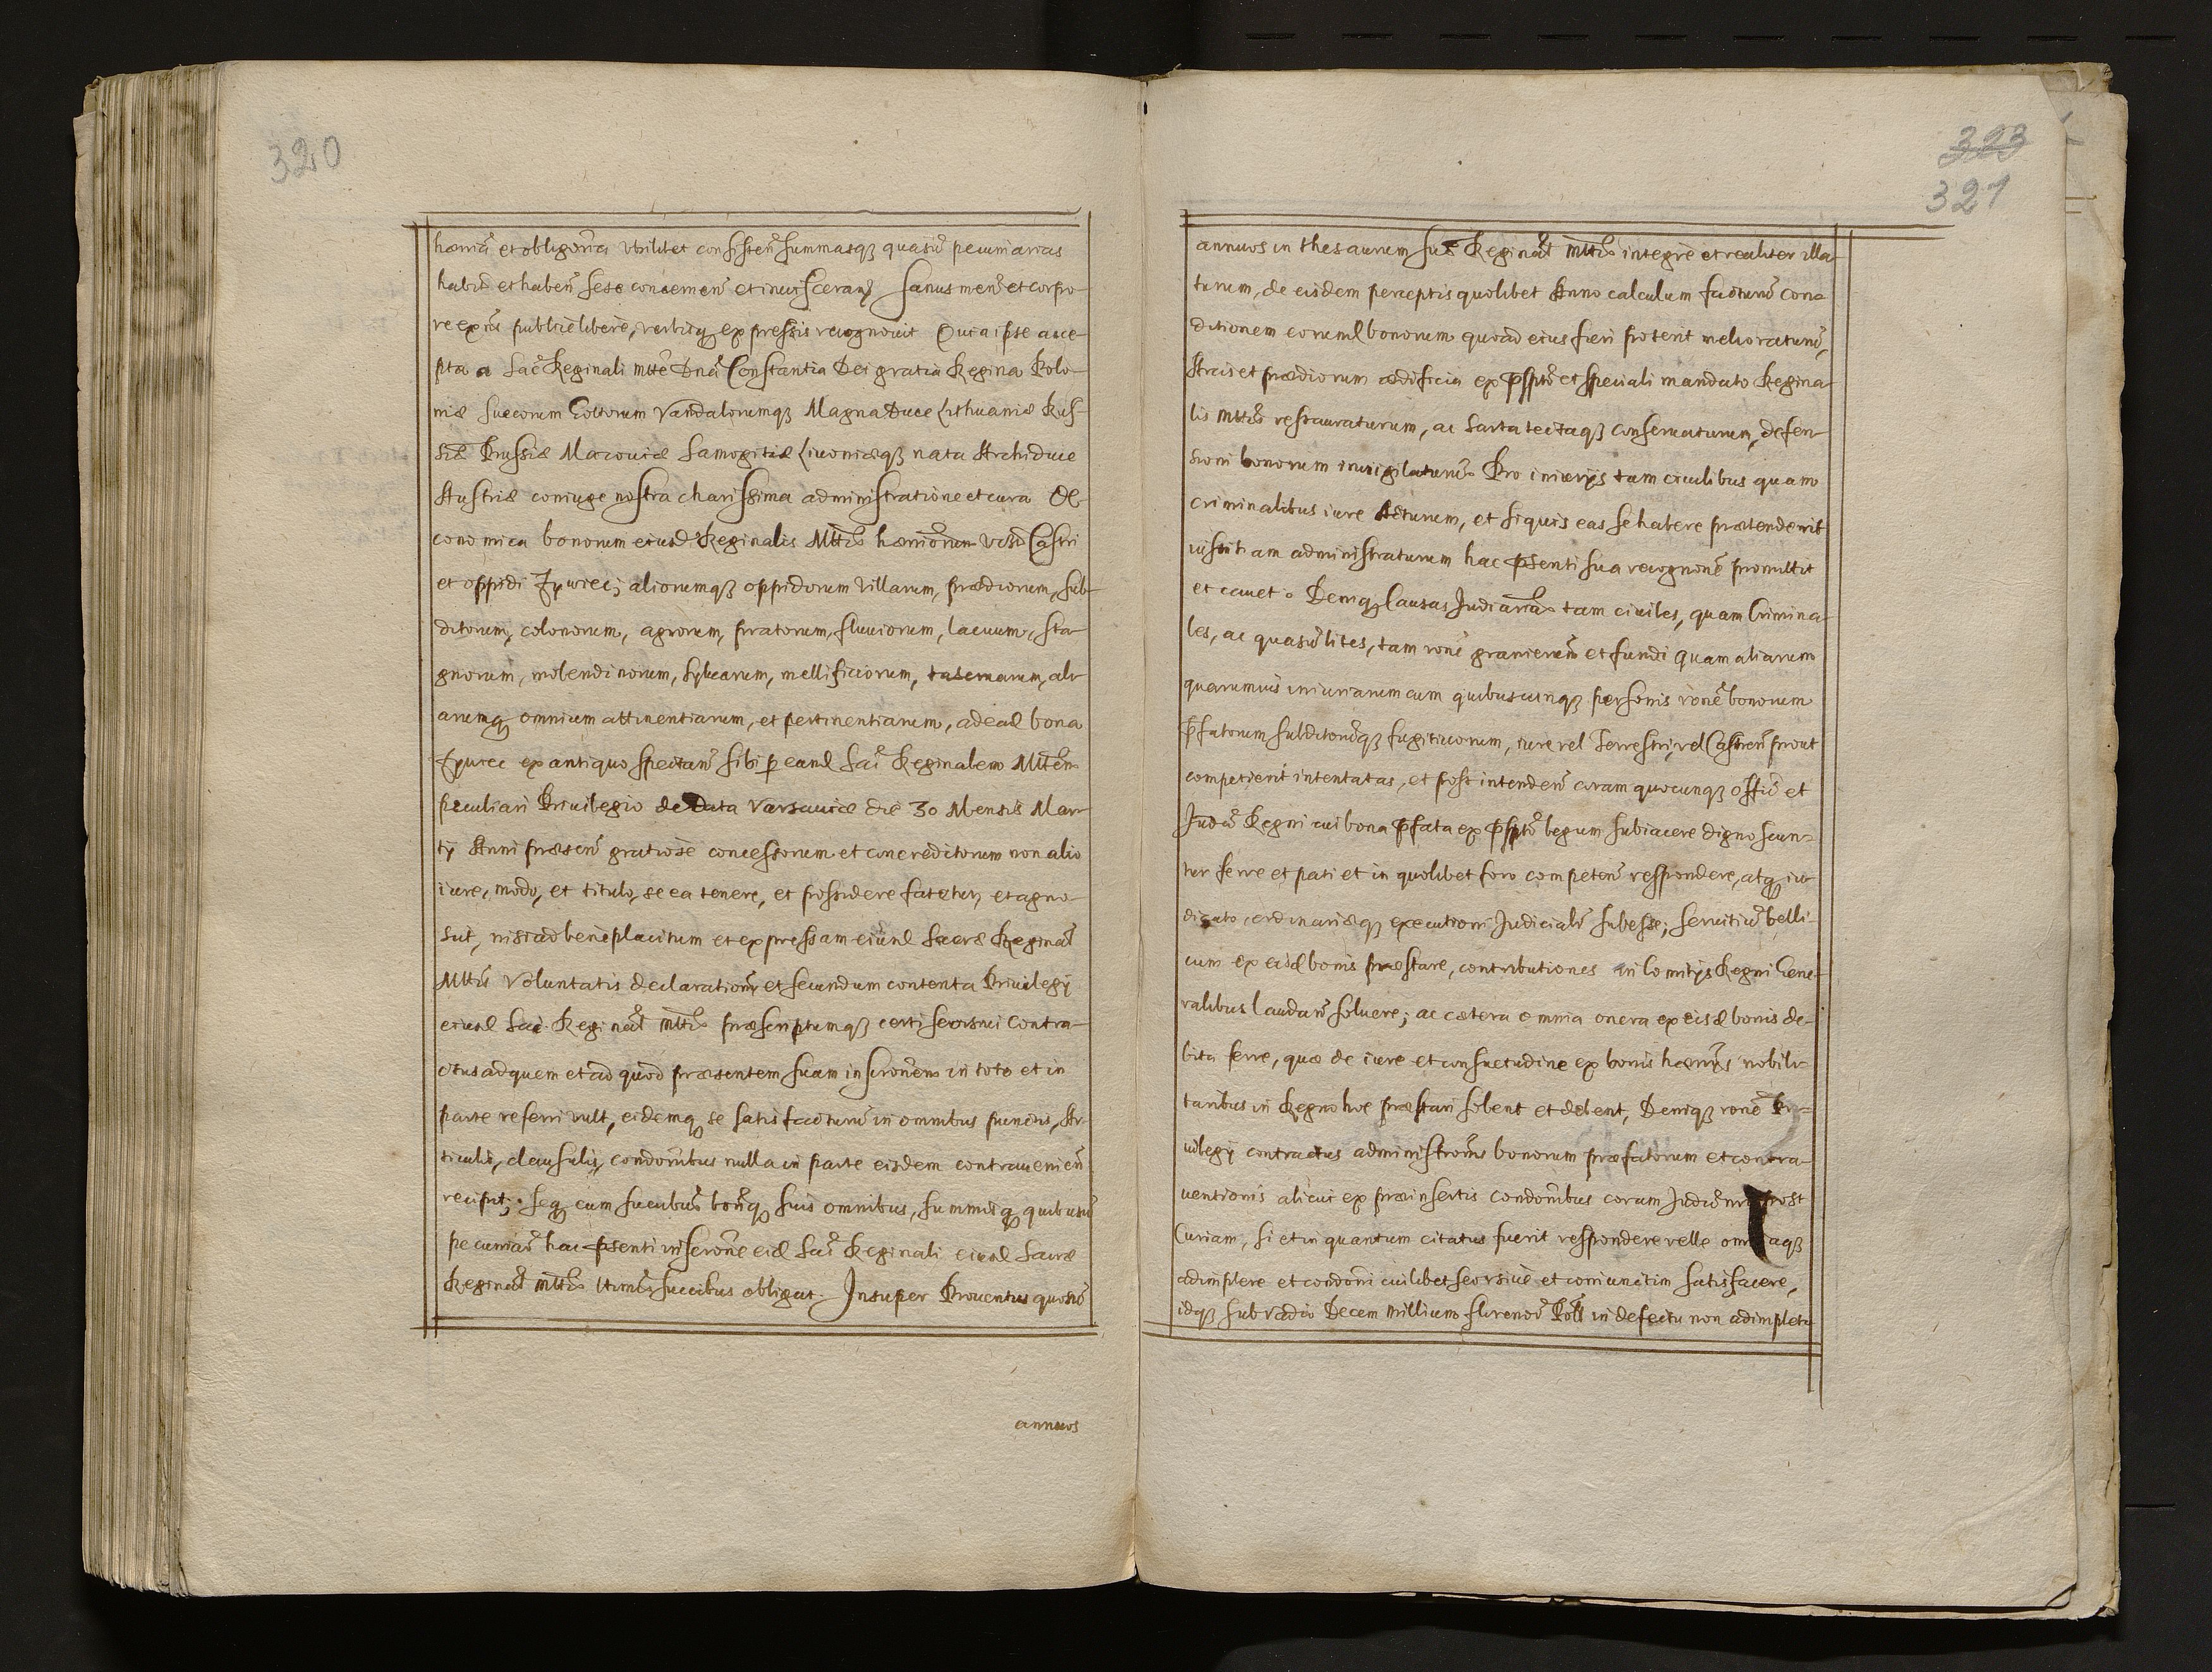 320
hæred et obligoria vbilibet consisten summasq quasuis pecuniarias
habit et haben sese conuemen et inuiscerans sanus men et corpo-
re exns publice libere, verbisq expressis recognouit Quia ipse acce-
pta a Sac Reginali Mtte Dna Constantia Dei gratia Regina Polo-
niæ Suecorum Gottorum Vandalorumq Magna Duce Lithuaniæ Rus-
siæ Prussiæ Mazouiæ Samogitiæ Liuoniæq nata Archiduce
Austriæ coniuge nostra charissima administratione et cura Oe-
conomica bonorum eiusd Reginalis Mttis hæriorum vidt Castri
et oppidi Zywiec, aliorumq oppidorum villarum, prædiorum, sub-
ditorum, colonorum, agrorum, pratorum, fluuiorum, lacuum, sta-
gnorum, molendinorum, syluarum, mellificiorum, tabernarum, ali-
arumq omnium attinentiarum, et pertinentiarum, ad ead bona
Zywiec ex antiquo spectan sibi p eand Sac Reginalem Mttem
peculiari Priuilegio de Data Varsauiæ die 30 Mensis Mar-
tij Anni præsen gratiose concessorum et concreditorum non alio
iure, modo, et titulo, se ea tenere, et possidere fatetur, et agno-
scit, nisi ad beneplacitum et expressam eiusd Sacræ Reginal
Mttis voluntatis declarationem et secundum contenta Priuilegij
eiusd Sac Reginal Mttis præscriptumq certi seorsiui Contra-
ctus ad quem et ad quod præsentem suam inscronem in toto et in
parte referri vult, eidemq se satisfacturum in omnibus punctis, Ar-
ticulis, clausulis, condonibus nulla in parte eisdem contrauenien
recipit; seq cum succibus bonisq suis omnibus, summisq quibusuis
pecuniar hac psenti inscrone eid Sac Reginali eiusd Sacræ
Reginal Mttis ltimis succibus obligat. Insuper Prouentus quosuis
annuos
323
321
annuos in thesaurum suæ Reginal Mttis integre et realiter illa-
turum, de eisdem perceptis quolibet Anno calculum facturum con-
ditionem eorund bonorum quoad eius fieri poterit melioraturum,
Arcis et prædiorum ædificia ex pspto et speciali mandato Regina-
lis Mttis restauraturum, ac sarta tectaq conseruaturum, defen-
sioni bonorum inuigilaturum. Pro iniurijs tam ciuilibus quam
criminalibus iure Acturum, et si quis eas se habere prætenderit
iustitiam administraturum hac psenti sua recognone promittit
et cauet. Deniq Causas Judiarias tam ciuiles, quam Crimina-
les, ac quasuis lites, tam rone granicierum et fundi quam aliarum
quarumuis iniuriarum cum quibuscunq personis rone bonorum
pfatorum subditorumq fugitiuorum, iure vel Terrestri, vel Castren prout
competierit intentatas, et post intenden coram quocunq Offo et
Judo Regni cui bona pfata ex pspto legum subiacere dignoscun-
tur ferre et pati et in quolibet foro competen respondere, atq iu-
dicato, ordinariæq executioni Judiciali subesse; seruitium belli-
cum ex eisd bonis præstare, contributiones in Comitijs Regni Gene-
ralibus laudan soluere; ac cætera omnia onera ex eisd bonis de-
bita ferre, quæ de iure et consuetudine ex bonis hærijs nobili-
taribus in Regno hoc præstari solent et debent, Deniq rone Pri-
uilegij contractus administronis bonorum præfatorum et contra-
uentionis alicui ex præinsertis condonibus coram Judo nro post
Curiam, si et in quantum citatus fuerit respondere velle omniaq
adimplere et condoni cuilibet seorsiue et coniunctim satisfacere,
idq sub vadio Decem millium florenor Poll in defectu non adimpleti